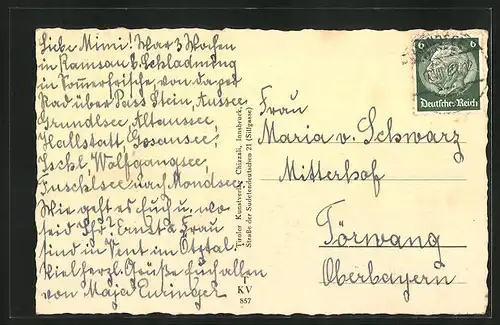 Liebe Mimi! War 3 Wochen
in Ramsau b. Schladming
in Sommerfrische, von da per
Rad über Pass Stein, Aussee,
Grundlsee, Altaussee,
Hallstatt, Gosausee,
Ischl, Wolfgangsee,
Fuschlsee nach Mondsee.
Wie geht es Euch u. wo
seid Ihr? Ernst u. Frau
sind in Vent im Ötztal.
Vielherzl. Grüße Euch allen
von Maja
Tiroler Kunstverlag Chizzali, Innsbruck,
Straße der Sudetendeutschen 21 (Sillgasse)
T
KV
857
6 6
Deutsches Reich
Frau
Maria v. Schwarz
Mitterhof
Törwang
Oberbayern